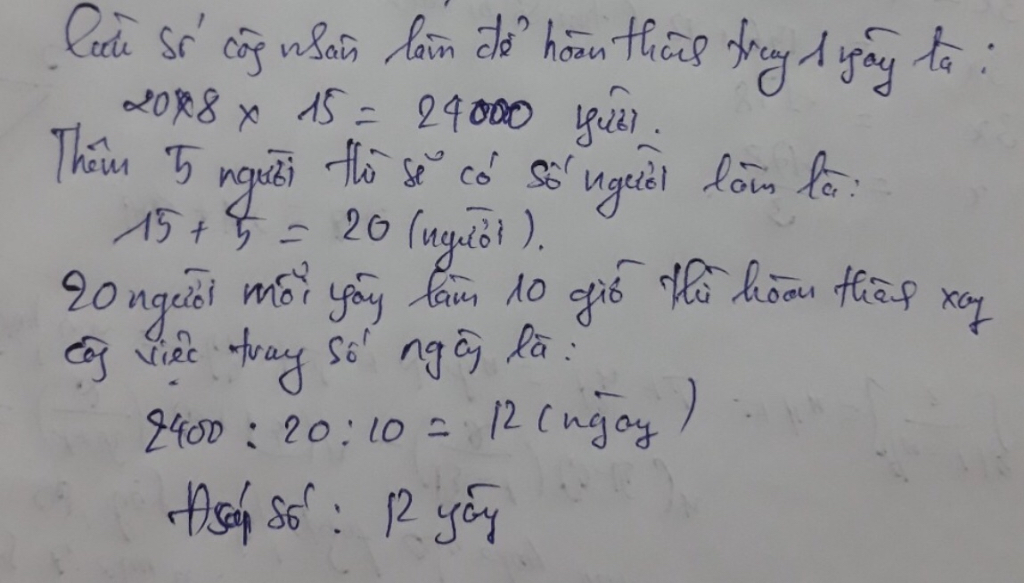 Cần số công nhân làm để hoàn thành trong 1 ngày là:
20 x 8 x 15 = 24000 người.
Thêm 5 người thì sẽ có số người làm là:
15 + 5 = 20 (người).
20 người mỗi ngày làm 10 giờ thì hoàn thành xong
công việc trong số ngày là:
2400 : 20 : 10 = 12 (ngày)
Đáp số : 12 ngày